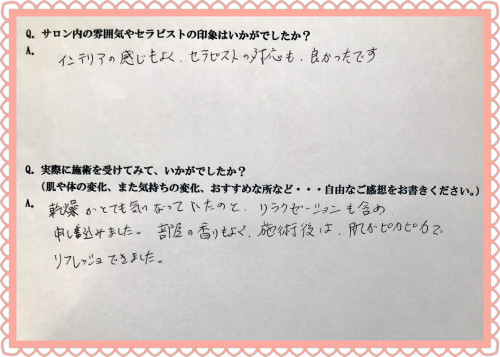 Q. サロン内の雰囲気やセラピストの印象はいかがでしたか？
A. インテリアの感じもよく、セラピストの対応も、良かったです
Q. 実際に施術を受けてみて、いかがでしたか？
（肌や体の変化、また気持ちの変化、おすすめな所など・・・自由なご感想をお書きください。）
A. 乾燥がとても気になっていたのと、リラクゼーションも含め
申し込みました。部屋の香りもよく、施術後は、肌がピカピカで、
リフレッシュできました。